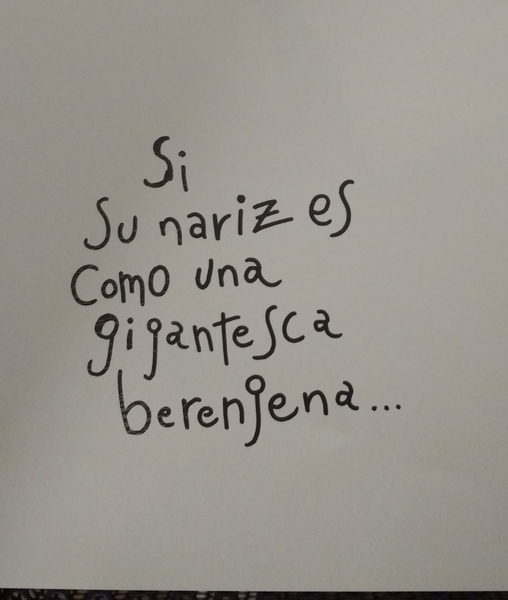 Si
Su nariz es
Como una
gigantesca
berenjena...